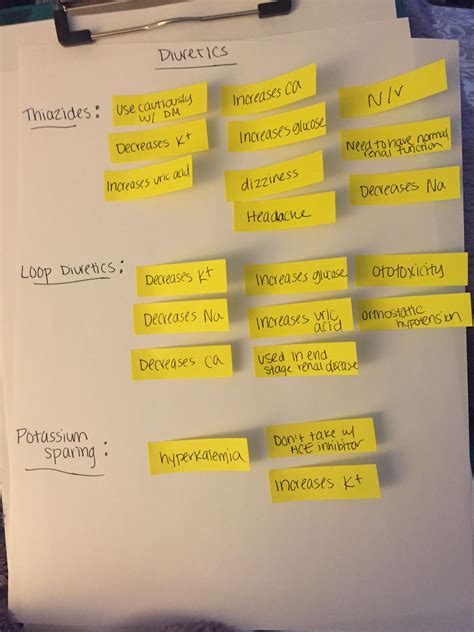 Diuretics
Thiazides:
Use cautiously
w/ DM
Increases Ca
N/V
Decreases K+
Increases glucose
Need to have normal
renal function
Increases uric acid
dizziness
Decreases Na
Headache
Loop Diuretics:
Decreases K+
Increases glucose
Ototoxicity
Decreases Na
Increases uric
acid
ormostatic
hypotension
Decreases Ca
used in end
stage renal disease
Potassium
sparing:
hyperkalemia
Don't take w/
ACE inhibitor
Increases K+